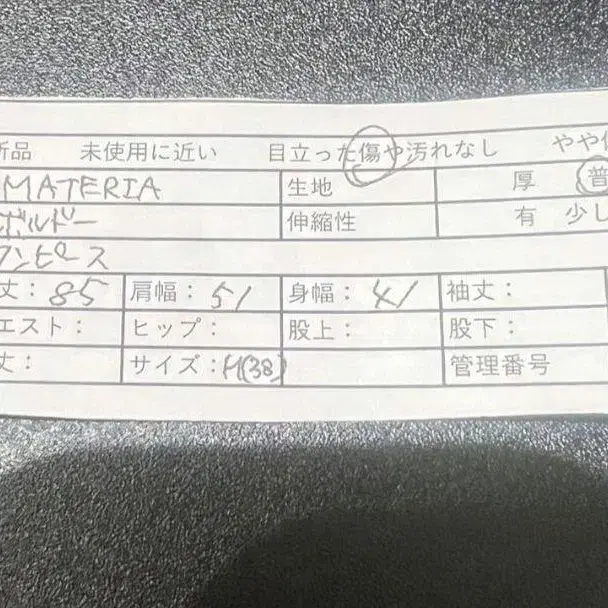 新品 未使用に近い 目立った傷や汚れなし やや
MATERIA 生地 厚 普
ボルドー 伸縮性 有 少し
ワンピース
丈：85 肩幅：51 身幅：41 袖丈：
エスト： ヒップ： 股上： 股下：
丈： サイズ：M(38) 管理番号